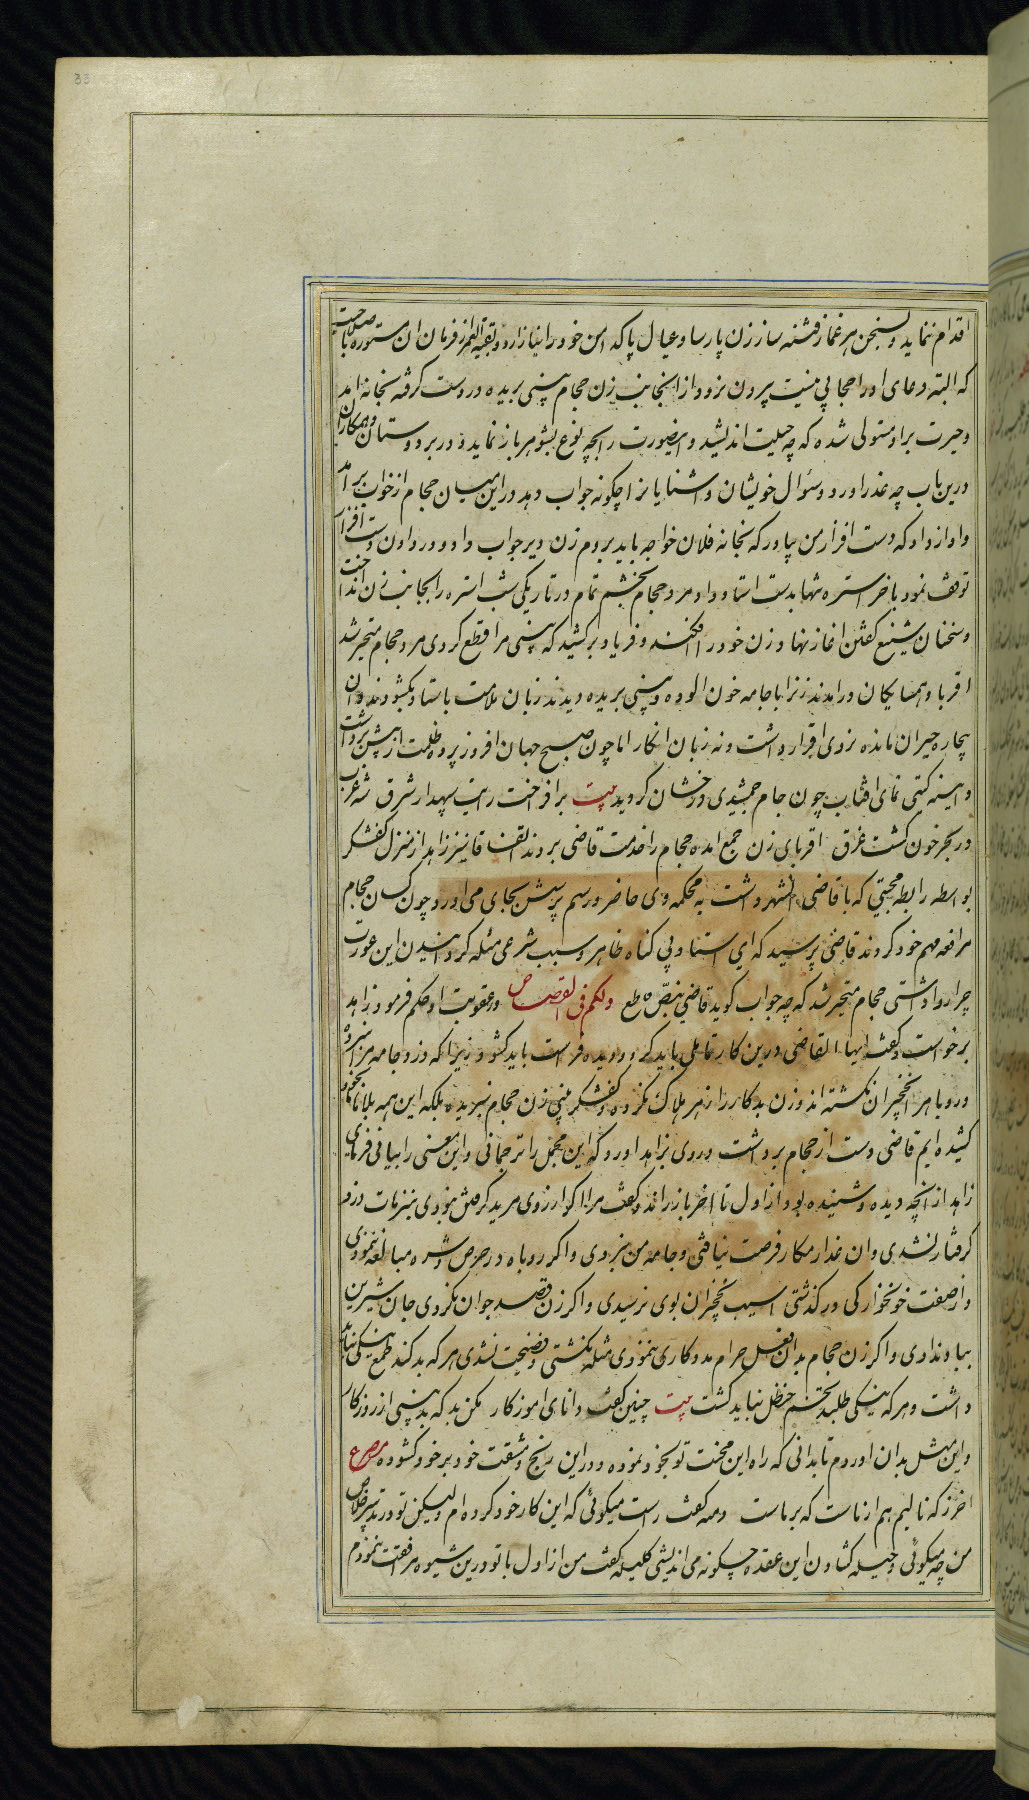 35
اقدام ننماید و بسخن هر غماز فتنه ساز زن پارسا و عیال پاکدامن خود را نیازارد و بقیة العمر از فرمان آن مستوره با صلاحیت
که البته دعای او را حجابی نیست بیرون نرود و از اینجانب زن حجام بینی بریده در دست گرفته بخانه آمد
و حیرت برو مستولی شده که چه حیلت اندیشد و این صورت را بچه نوع بشوهر باز نماید و در برد دوستان و همکاران
درین باب چه عذر آورد و سؤال خویشان و آشنایانرا چگونه جواب دهد در این میان حجام از خواب برآمد
و آواز داد که دست افزار من بیاور که بخانه فلان خواجه باید بروم زن دیر جواب داد و در دادن دست افزار
توقف نمود باخر استره تنها بدست استاد داد مرد حجام بخشم تمام در تاریکی شب استره را بجانب زن انداخت
و سخنان شنیع گفتن آغاز نهاد زن خود را افکند و فریاد برکشید که بینی مرا قطع کردی مرد حجام متحیر شد
اقربا و همسایگان درآمدند زنرا با جامه خون آلوده و بینی بریده دیدند زبان ملامت باستاد بگشودند و آن
بیچاره حیران مانده نه روی اقرار داشت و نه زبان انکار اما چون صبح جهان افروز پرده ظلمت از پیش برداشت
و آینه گیتی نمای آفتاب چون جام جمشیدی درخشان گردید بیت برافراخت رایت سپهدار شرق شه غرب
در بحر خون گشت غرق اقربای زن جمع آمده حجام را خدمت قاضی بردند اتفاقا نیز زاهد از منزل کفشگر
بواسطه رابطه محبتی که با قاضی آن شهر داشت به محکمه وی حاضر و رسم پرسش بجای می آورد چون کسان حجام
مرافعه مهم خود کردند قاضی پرسید که ای استاد بی گناه ظاهر و سبب شرعی مثله گردانیدن این عورت
چرا روا داشتی حجام متحیر شد که چه جواب گوید قاضی بنص قاطع ولکم فی القصاص در عقوبت او حکم فرمود زاهد
برخواست و گفت ایها القاضی درین کار تأملی باید کرد و دیده فراست باید گشود زیرا که دزد جامه مرا نبرده
و روباهرا نخچیران نکشته اند و زن بدکار را زهر هلاک نکرده و کفشگر بینی زن حجام نبریده بلکه این همه بلا ما بخود
کشیده ایم قاضی دست از حجام برداشت و روی بزاهد آورد که این مجمل را ترجمانی و این معنی را بیانی فرمای
زاهد از آنچه دیده و شنیده بود از اول تا آخر باز راند و گفت مرا اگر آرزوی مرید گرفتن نبودی بترهات دزد
گرفتار نشدی و آن غدار مکار فرصت نیافتی و جامه من نبردی و اگر روباه در حرص و شره مبالغه ننمودی
و از صفت خونخوارگی در گذشتی آسیب نخچیران بوی نرسیدی و اگر زن قصد جوان نکردی جان شیرین
بباد ندادی و اگر زن حجام بدان فعل حرام مددکاری ننمودی مثله نگشتی و فضیحت نشدی هر که بد کند طمع نیکی نباید
داشت و هر که نیشکر طلبد تخم حنظل نباید کشت بیت چنین گفت دانای آموزگار مکن بد که بد بینی از روزگار
و این مثل بدان آوردم تا بدانی که راه این محنت تو بخود نموده و در این رنج و مشقت خود بر خود گشوده مصرع
آخر ز که نالیم هم از ماست که بر ماست دمنه گفت راست میگوئی که این کار خود کرده ام و لیکن تو در تدبیر خلاص
من چه میگوئی و حیله گشادن این عقده چگونه می اندیشی کلیله گفت من از اول با تو درین شیوه مرافقت ننمودم